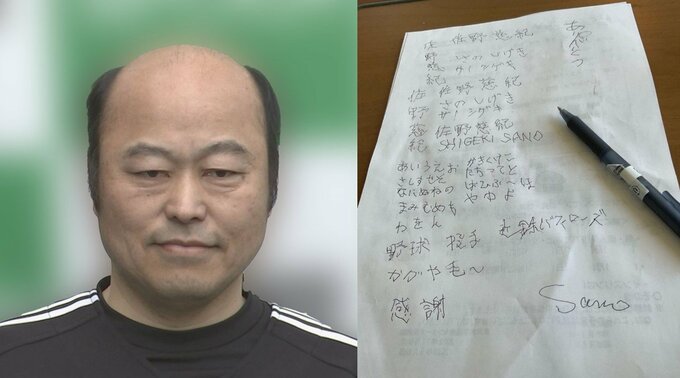 佐 佐野慈紀
野 さのしげき
慈 サノシゲキ
紀
佐 佐野慈紀
野 さのしげき
サノシゲキ
慈 佐野慈紀
紀 SHIGEKI SANO
あいうえお かきくけこ
さしすせそ たちつてと
なにぬねの はひふへほ
まみむめも やゆよ
わをん
野球 投手 近鉄バファローズ
かがや毛〜
感謝 Sano